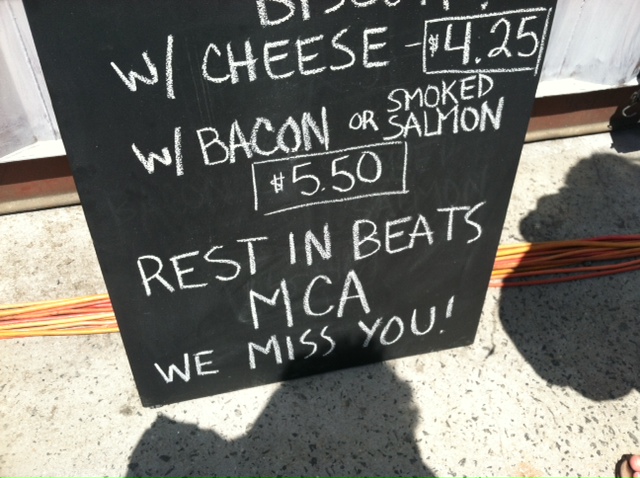 W/ CHEESE - $4.25
W/ BACON OR SMOKED SALMON
$5.50
REST IN BEATS
MCA
WE MISS YOU!